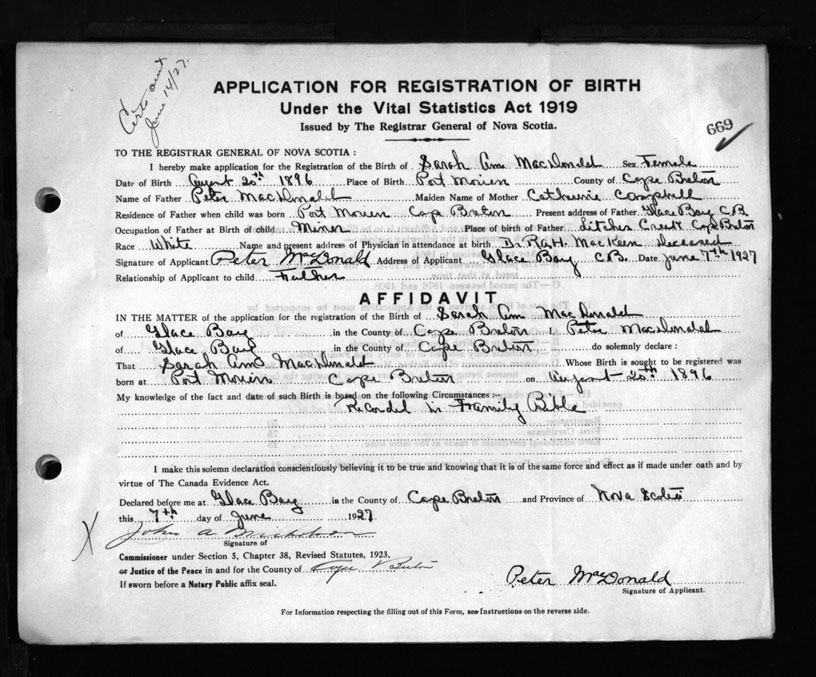 Certs sent
June 14/27.
APPLICATION FOR REGISTRATION OF BIRTH
Under the Vital Statistics Act 1919
Issued by The Registrar General of Nova Scotia.
669
TO THE REGISTRAR GENERAL OF NOVA SCOTIA :
I hereby make application for the Registration of the Birth of Sarah Ann MacDonald Sex Female
Date of Birth August 20th 1896 Place of Birth Port Morien County of Cape Breton
Name of Father Peter MacDonald Maiden Name of Mother Catherine Campbell
Residence of Father when child was born Port Morien Cape Breton Present address of Father Glace Bay C.B.
Occupation of Father at Birth of child Miner Place of birth of Father Litches Creek Cape Breton
Race White Name and present address of Physician in attendance at birth Dr. R.A.H. MacKeen deceased
Signature of Applicant Peter McDonald Address of Applicant Glace Bay C.B. Date June 7th 1927
Relationship of Applicant to child Father
AFFIDAVIT
IN THE MATTER of the application for the registration of the Birth of Sarah Ann MacDonald
of Glace Bay in the County of Cape Breton I, Peter MacDonald
of Glace Bay in the County of Cape Breton do solemnly declare :
That Sarah Ann MacDonald Whose Birth is sought to be registered was
born at Port Morien Cape Breton on August 20th 1896
My knowledge of the fact and date of such Birth is based on the following Circumstances :-
Recorded in Family Bible
I make this solemn declaration conscientiously believing it to be true and knowing that it is of the same force and effect as if made under oath and by
virtue of The Canada Evidence Act.
Declared before me at Glace Bay in the County of Cape Breton and Province of Nova Scotia
this 7th day of June 1927
X
John A
Signature of
Commissioner under Section 5, Chapter 38, Revised Statutes, 1923,
or Justice of the Peace in and for the County of Cape Breton
If sworn before a Notary Public affix seal.
Peter McDonald
Signature of Applicant.
For Information respecting the filling out of this Form, see Instructions on the reverse side.